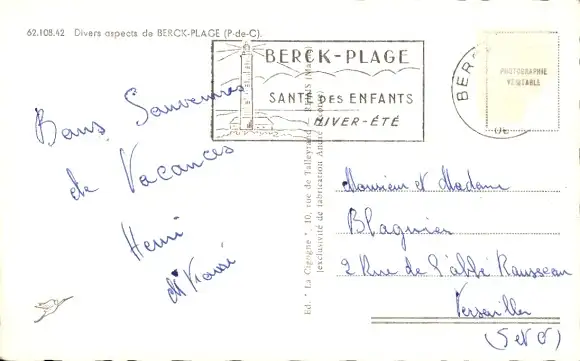 62.108.42 Divers aspects de BERCK-PLAGE (P-de-C).
BERCK-PLAGE
SANTÉ DES ENFANTS
HIVER-ÉTÉ
BERC
PHOTOGRAPHIE
VÉRITABLE
Bons Souvenirs
de Vacances
Henri
Ed. " La Cigogne ", 10, rue de Talleyrand - REIMS (Marne)
(exclusivité de fabrication André
Monsieur et Madame
2 Rue de l'abbé Rousseau
Versailles
(S et O)